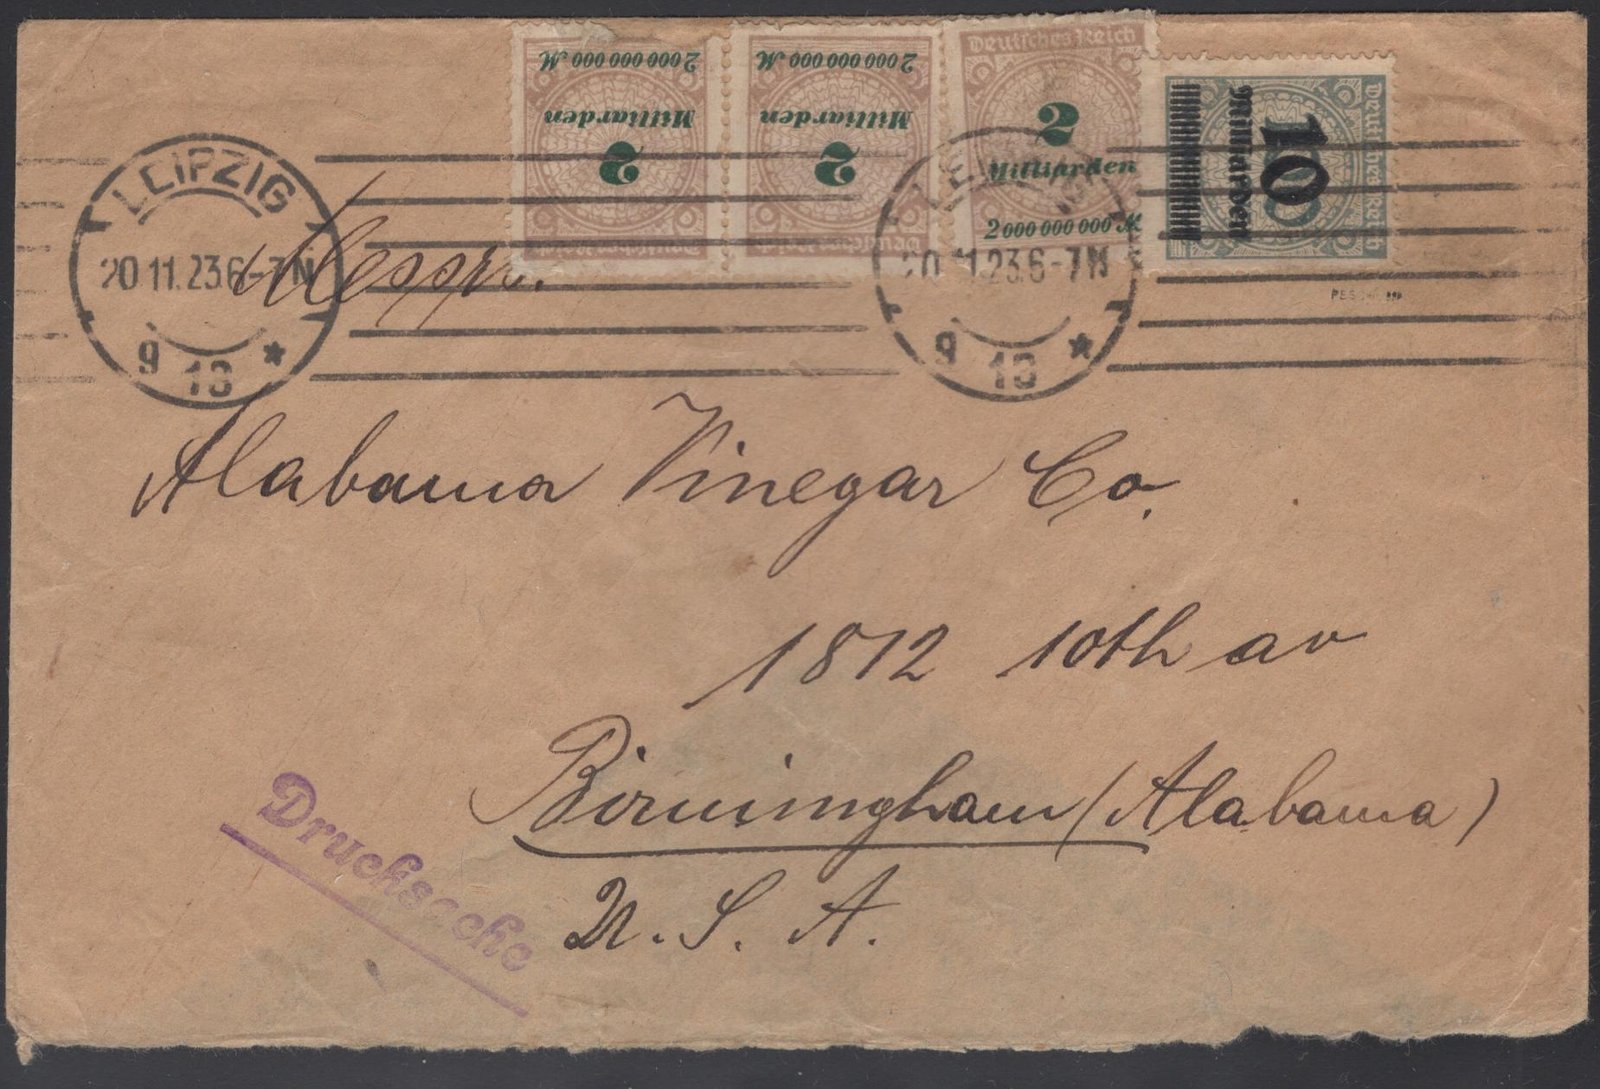 2000 000 000 M
Milliarden
2
Deutsches Reich
2000 000 000 M
Milliarden
2
Deutsches Reich
Deutsches Reich
2
Milliarden
2000 000 000 M
Deutsches Reich
10
Milliarden
LEIPZIG
20.11.23.6-7N
9 13 *
LEIPZIG
20.11.23.6-7N
9 13 *
Messrs.
Alabama Vinegar Co.
1812 10th av
Birmingham (Alabama)
U. S. A.
Drucksache